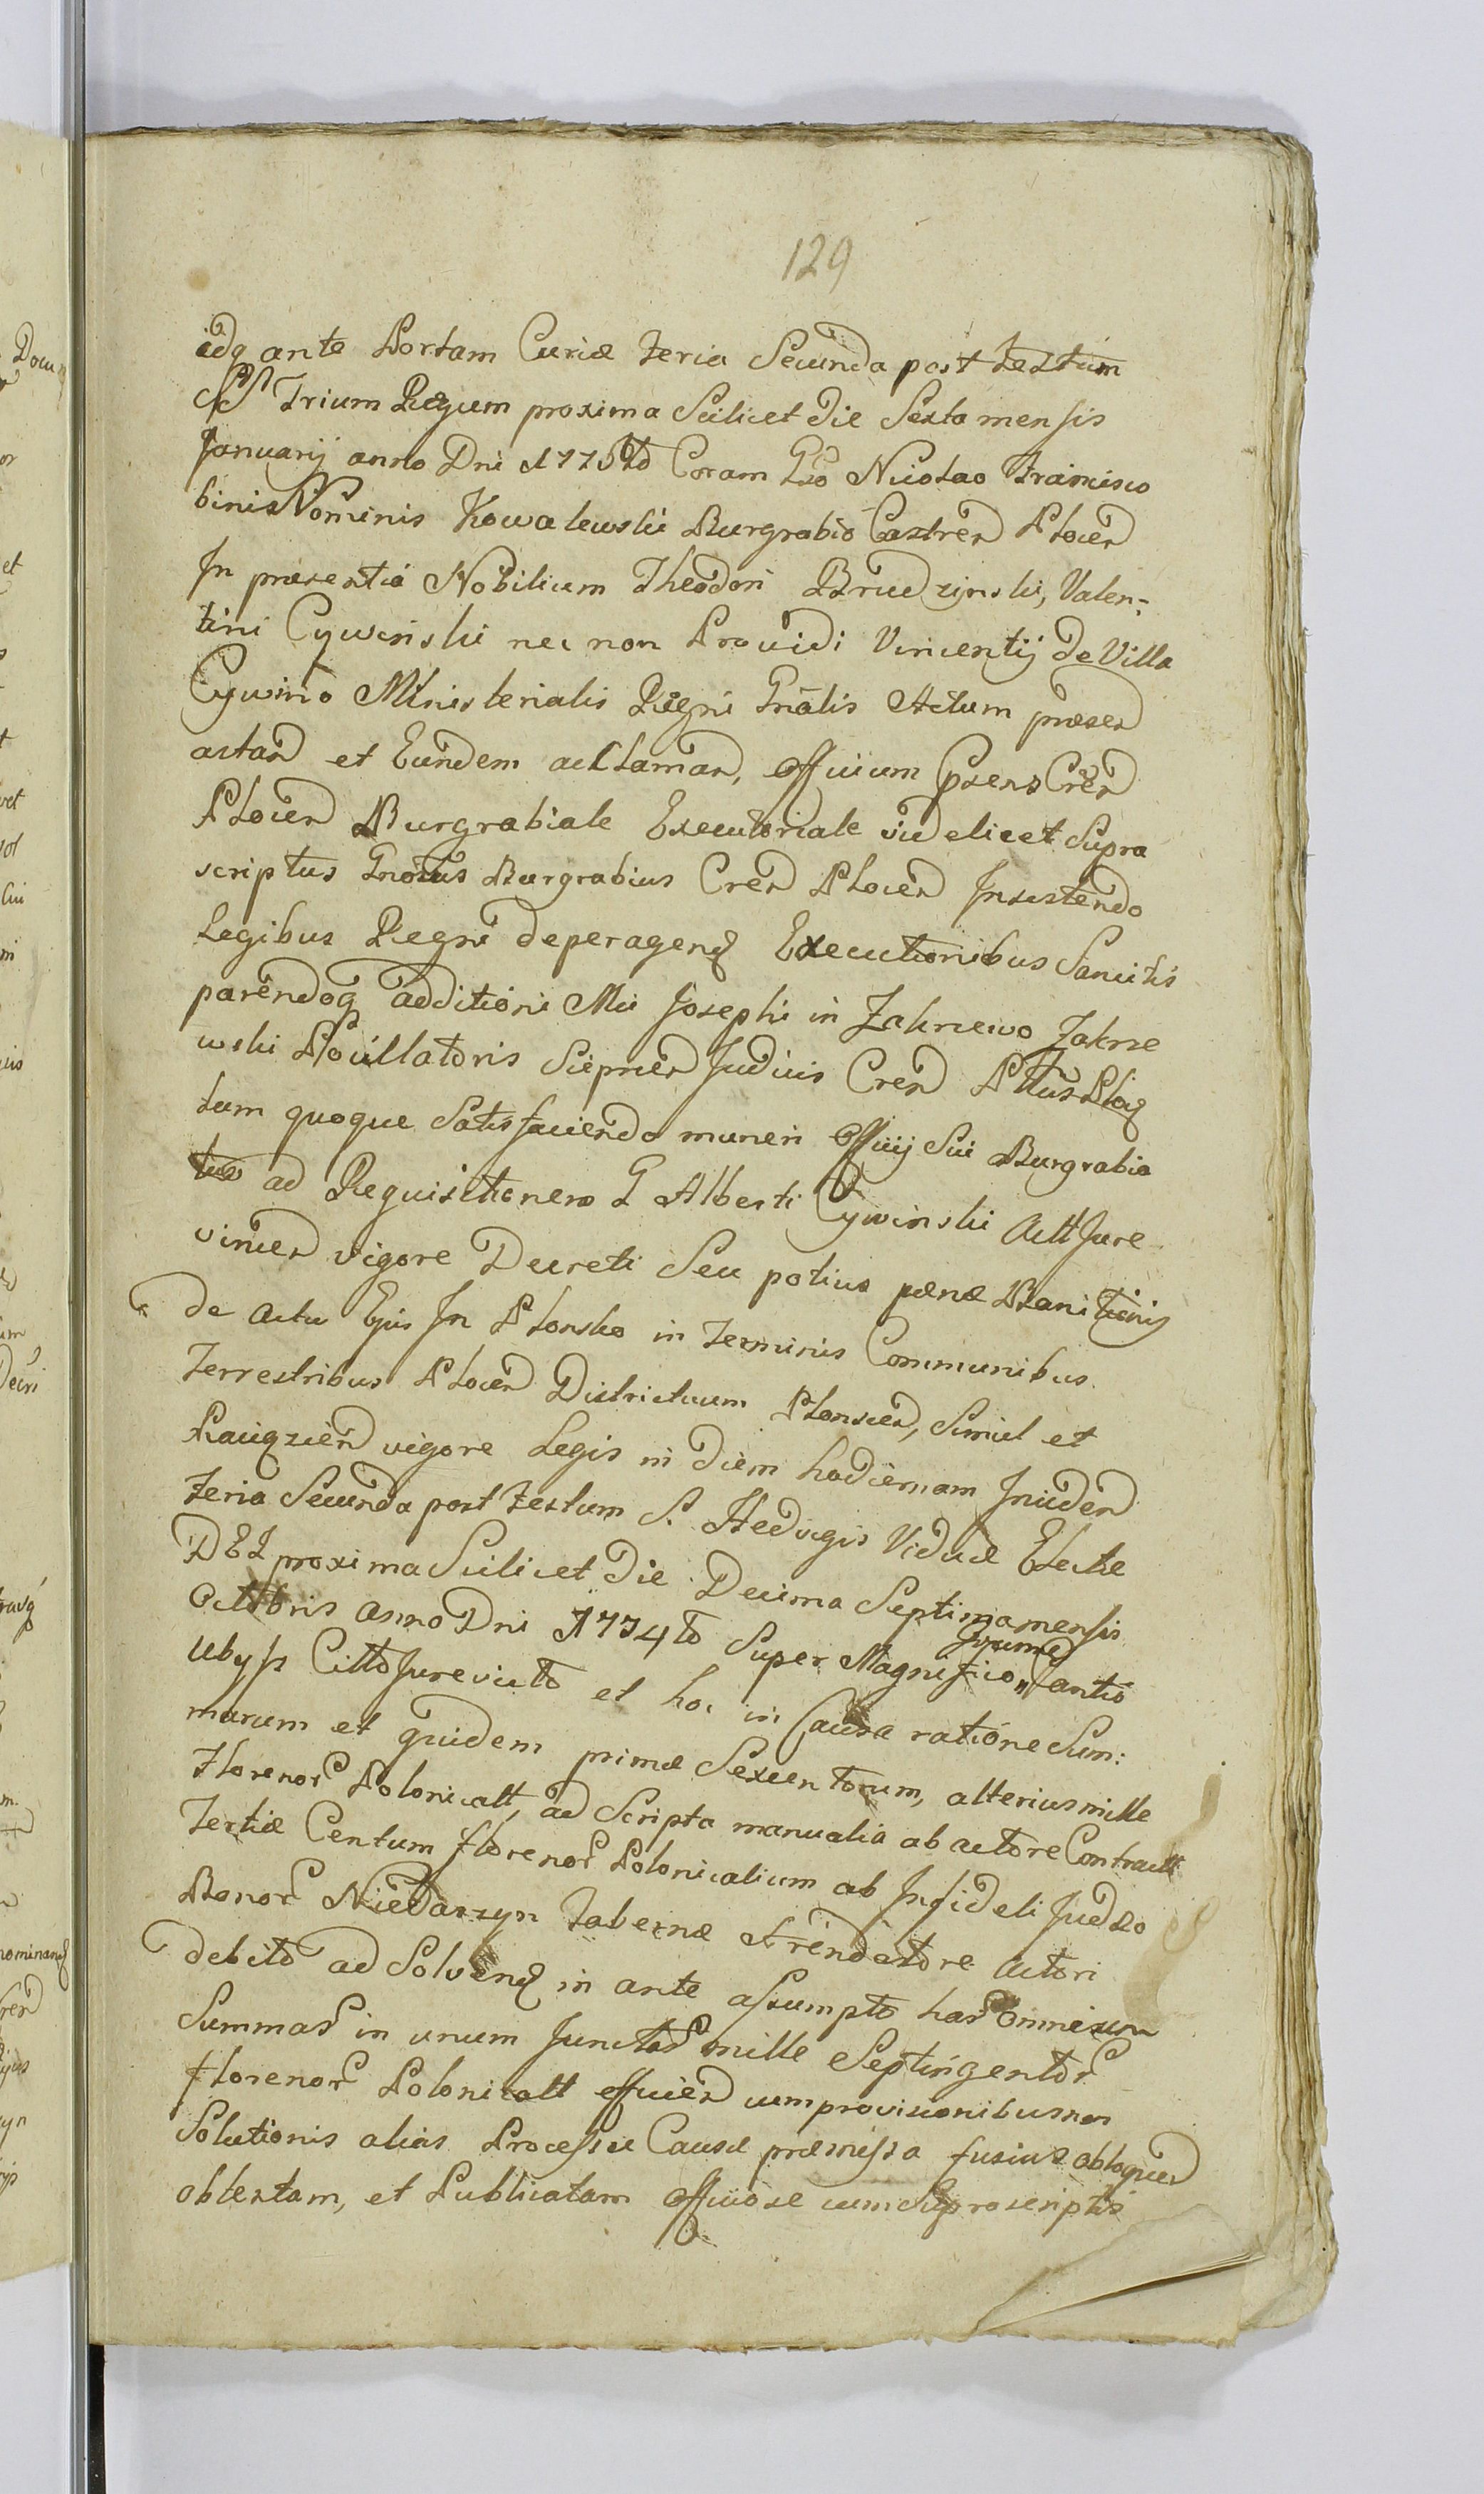 129
idq ante Portam Curiæ Feria Secunda post Festum
SS Trium Regum proxima Scilicet die Sexta mensis
Januarij anno Dni 1776to Coram Gso Nicolao Francisco
binis Nominis Kowalewski Burgrabio Castren Plocen
In præsentia Nobilium Theodori Brudzinski, Valen=
tini Cywinski nec non Providi Vincentij de Villa
Cywino Ministerialis Regni Gnalis Actum præsen
actan et Eundem acclaman, Officium præns Cren
Plocen Burgrabiale Executoriale videlicet Supra
scriptus Gnosus Burgrabius Cren Plocen Insistendo
Legibus Regni deperagend Executionibus Sancitis
parendoq additioni Mci Josephi in Zakrzewo Zakrze
wski Pocillatoris Sieprcen Judicis Cren Pttus Ploc
tum quoque Satisfaciendo muneri Officij Sui Burgrabia
tus ad Requisitionem G Alberti Cywinski Act Jure
vincen vigore Decreti Seu potius pænæ Banitionis
de Actu Ejus In Plonsko in Terminis Communibus
Terrestribus Plocen Districtuum Plonscen, Simul et
Raciązien vigore Legis in diem hodiernam Inciden
Feria Secunda post Festum S. Hedvigis Viduæ Electæ
DEI proxima Scilicet die Decima Septima mensis
Octobris Anno Dni 1774to Super Magnifico Zantio
Ubysz Citto Jurevicto et hoc in Causa ratione Sum:
marum et quidem primæ Sexcentorum, alterius mille
Florenor Polonicall, ad Scripta manualia ab actore Contract
Tertiæ Centum florenor Polonicalium ab Infideli Judæo
Bonor Niedarzyn Tabernæ Arendatore Actori
debito ad Solvend in ante assumpto har omnium
Summar in unum Junctar mille Septingentor
florenor Polonicall efficien cum provisionibus non
Solutionis alias Processu Causæ præmissa fusius obloquen
obtentam, et Publicatam Officiose cum Suprascriptis